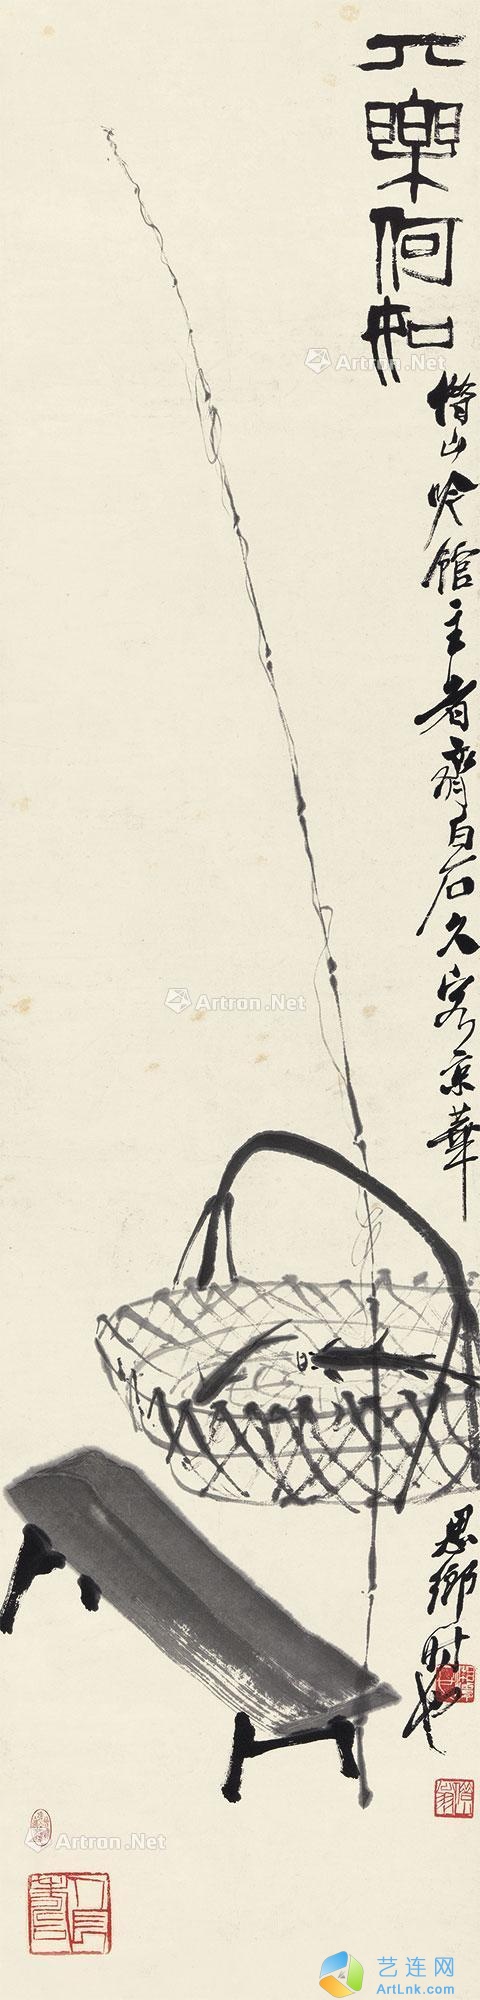 丌樂何如
借山吟館主者齊白石久客京華
思鄉時也
Artron.Net
Artron.Net
Artron.Net
Artron.Net
人長壽
艺连网
ArtLnk.com